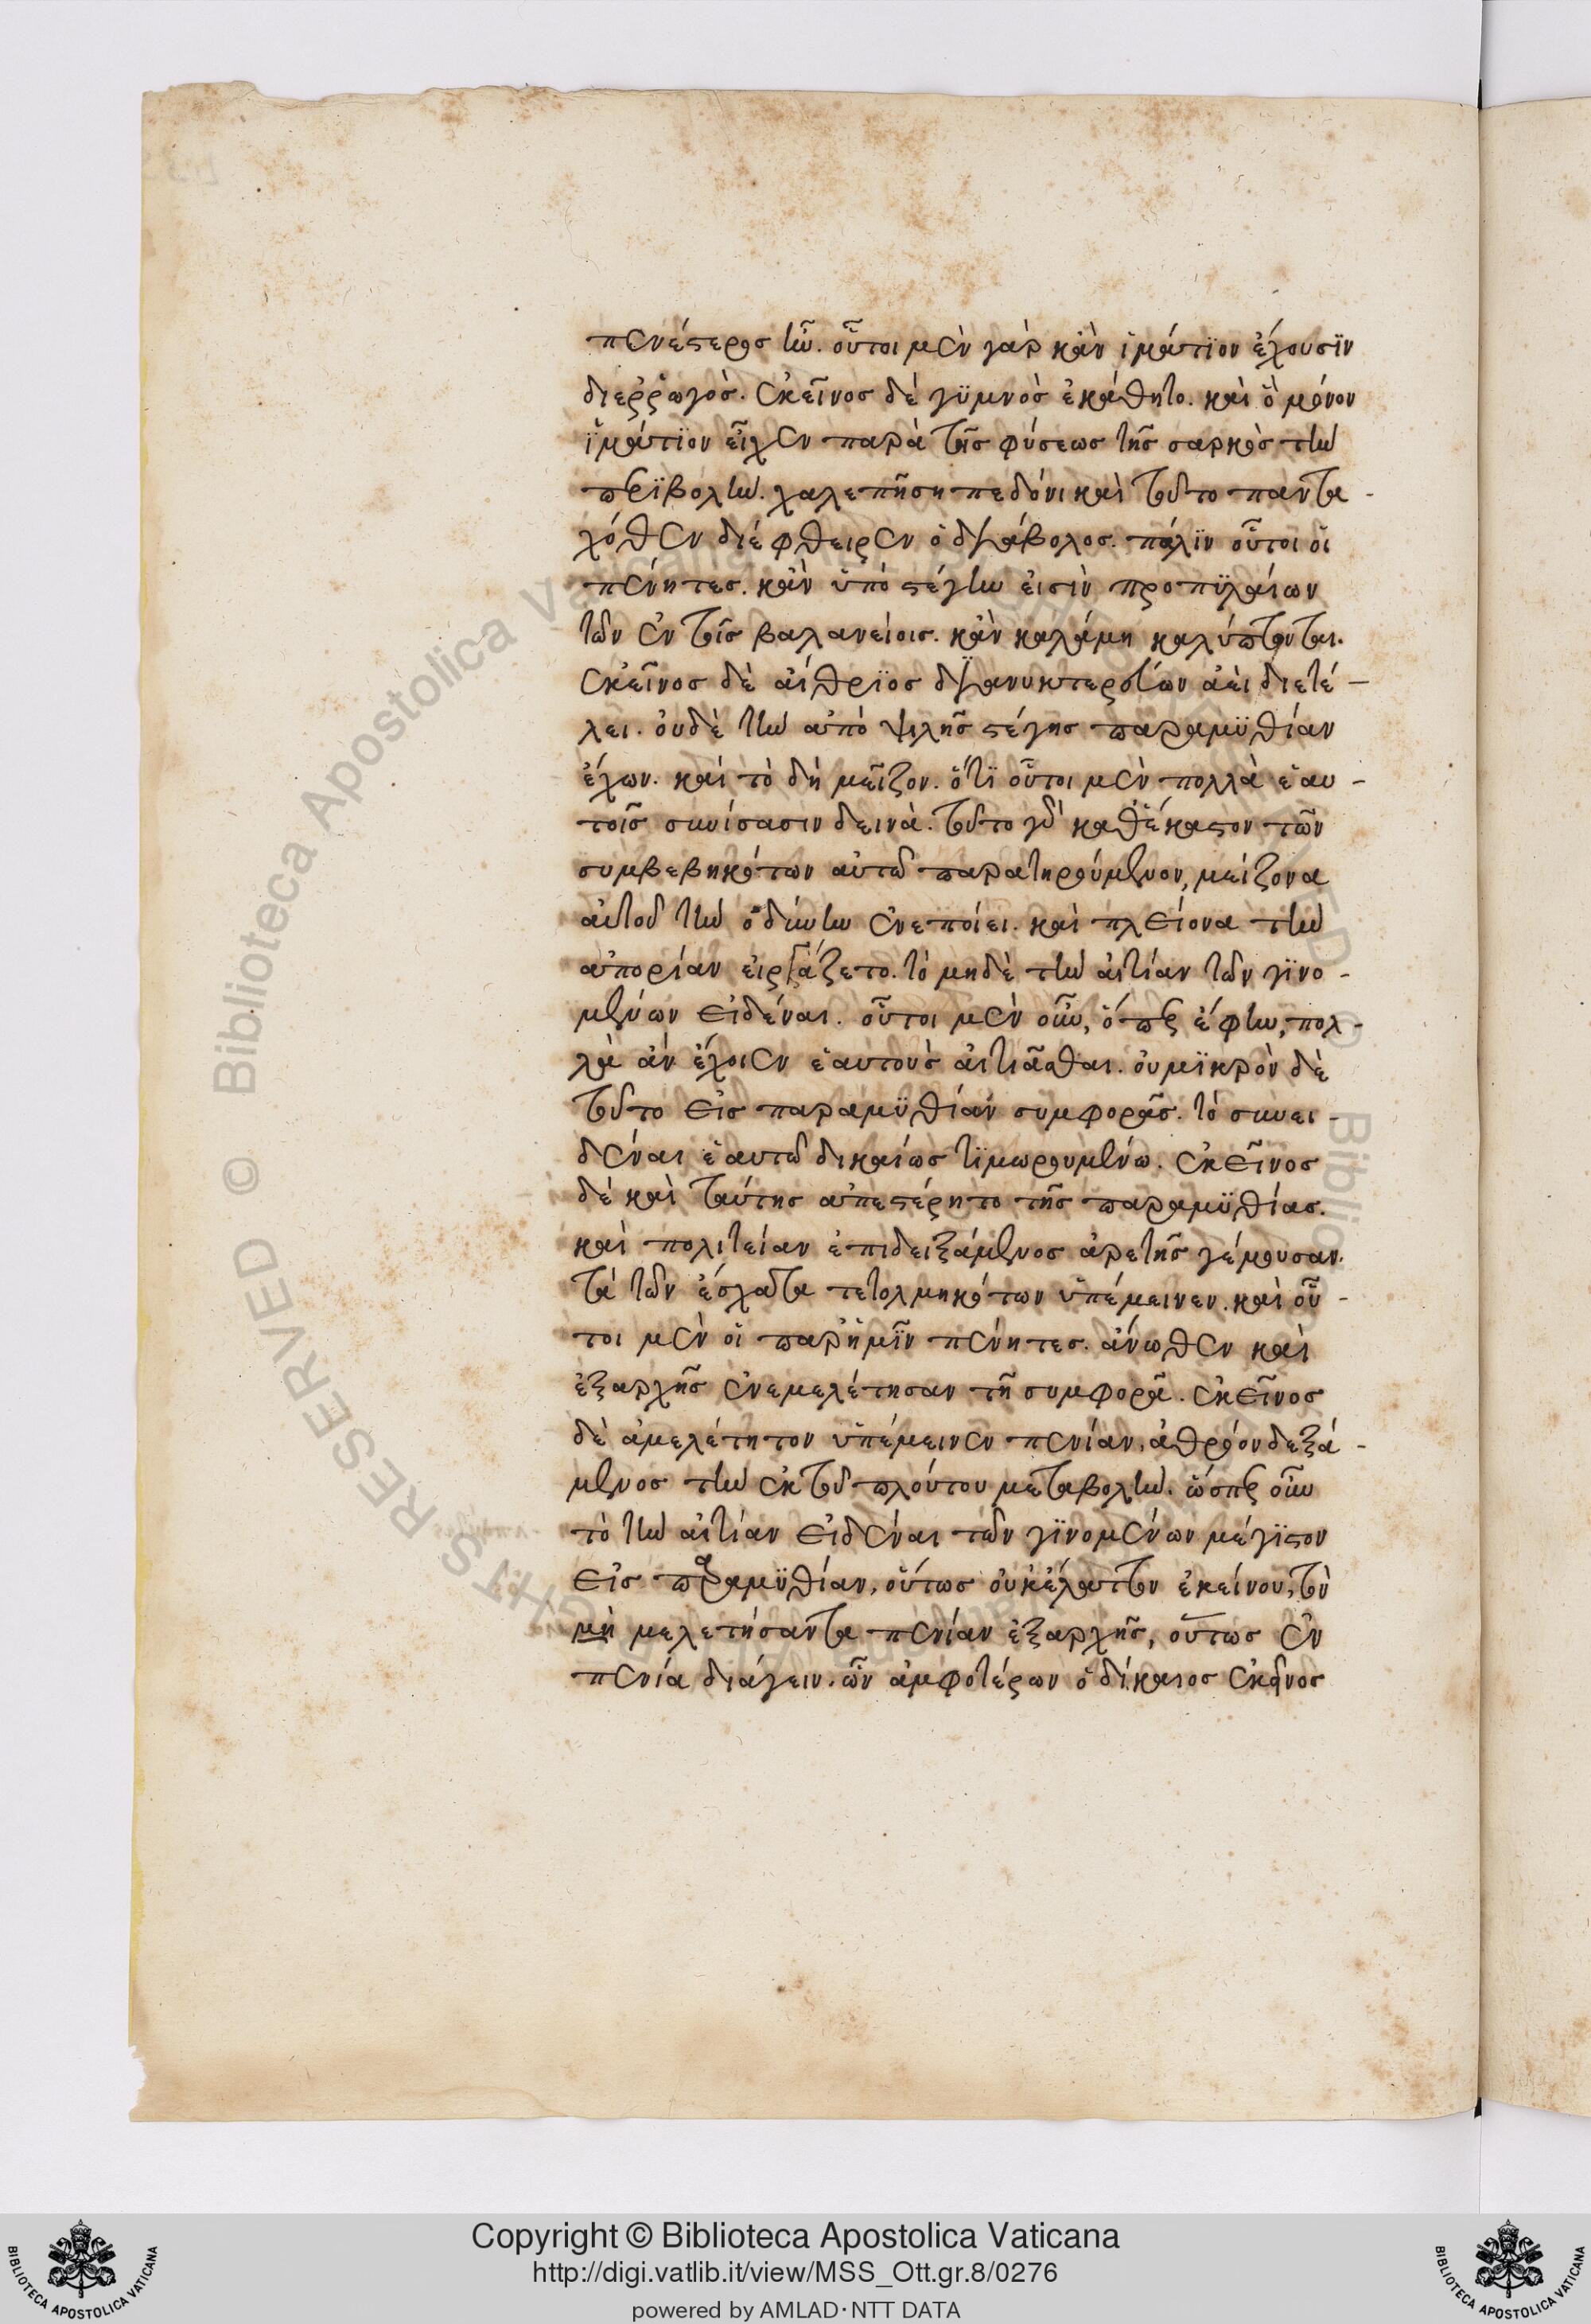 πενέστερος ἦν. οὗτοι μὲν γὰρ κἂν ἱμάτιον ἔχουσϊν
διεῤῥωγὸς. ἐκεῖνος δὲ γϋμνὸς ἐκάθητο. καὶ ὃ μόνον
ἱμάτϊον εἶχεν παρὰ τῆς φύσεως τῆς σαρκὸς τὴν
περϊβολὴν. χαλεπῇ σηπεδόνι καὶ τοῦτο παντα-
χόθεν διέφθειρεν ὁ διάβολος. πάλϊν οὗτοι οἱ
πένητες. κἂν ὑπὸ στέγην εἰσὶν προπϋλαίων
τῶν ἐν τοῖς βαλανείοις. κἂν καλάμη καλύπτονται.
ἐκεῖνος δὲ αἴθρϊος διανυκτερεύων ἀεὶ διετέ-
λει. οὐδὲ τὴν ἀπὸ ψιλῆς στέγης παραμϋθίαν
ἔχων. καὶ τὸ δὴ μεῖζον. ὅτϊ οὗτοι μὲν πολλὰ ἑαυ-
τοῖς συνίσασιν δεινὰ. τοῦτο γοῦν καθἕκαστον τῶν
συμβεβηκότων αὐτῶ παρατηρούμενον, μείζονα
αὐτοῦ τὴν ὀδύνην ἐνεποίει. καὶ πλείονα τὴν
ἀπορίαν εἰργάζετο. τὸ μηδὲ τὴν αἰτίαν τῶν γϊνο-
μένων εἰδέναι. οὗτοι μὲν οὖν, ὅπερ ἔφην, πολ-
λὰ ἂν ἔχοιεν ἑαυτοὺς αἰτιᾶσθαι. οὐ μϊκρὸν δὲ
τοῦτο εἰς παραμϋθίαν συμφορᾶς. τὸ συνει-
δέναι ἑαυτῶ δικαίως τϊμωρουμένω. ἐκεῖνος
δὲ καὶ ταύτης ἀπεστέρητο τῆς παραμϋθίας.
καὶ πολιτείαν ἐπιδειξάμενος ἀρετῆς γέμουσαν.
τὰ τῶν ἔσχατα τετολμηκότων ὑπέμεινεν. καὶ οὗ-
τοι μὲν οἱ παρἡμῖν πένητες. ἄνωθεν καὶ
ἐξαρχῆς ἐνεμελέτησαν τῆ συμφορᾶ. ἐκεῖνος
δὲ ἀμελέτητον ὑπέμεινεν πενίαν, ἀθρόον δεξά-
μενος τὴν ἐκ τοῦ πλούτου μεταβολὴν. ὥσπερ οὖν
τὸ τὴν αἰτίαν εἰδέναι τῶν γϊνομένων μέγϊστον
εἰς παραμϋθίαν, οὕτως οὐκἔλαττον ἐκείνου, τὸν
μὴ μελετήσαντα πενίαν ἐξαρχῆς, οὕτως ἐν
πενία διάγειν. ὧν ἀμφοτέρων ὁ δίκαιος ἐκεῖνος
Copyright © Biblioteca Apostolica Vaticana
http://digi.vatlib.it/view/MSS_Ott.gr.8/0276
powered by AMLAD·NTT DATA